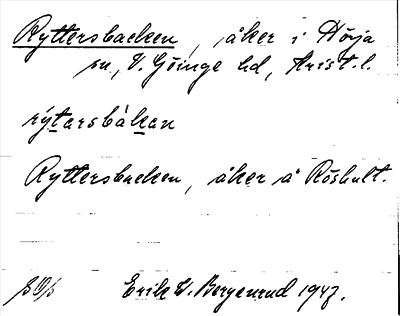 Ryttersbacken, åker i Hörja
sn, V. Göinge hd, Krist. l.
rýtarsbàkan
Ryttersbacken, åker å Röshult.
Erik W. Bergenrud 1947.